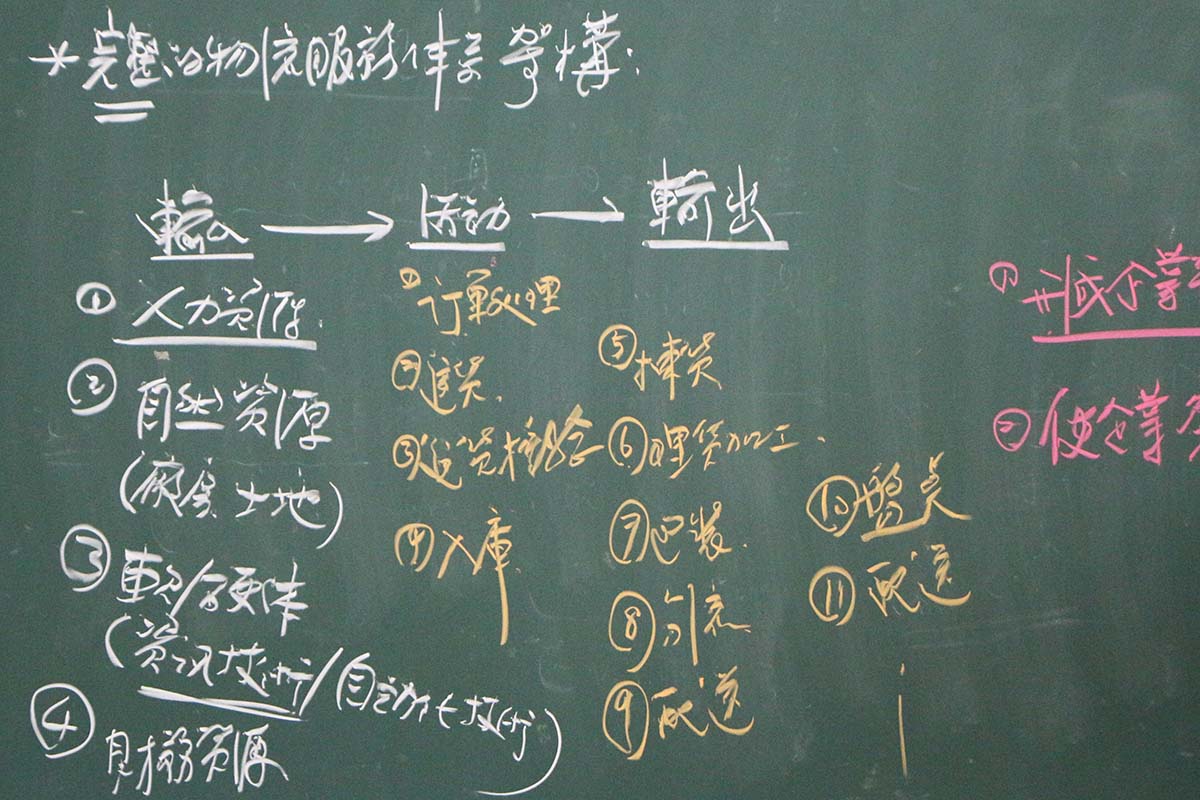 *完整的物流服務体系架構:
輸入 → 活动 → 輸出
① 人力資源.
② 自然資源
(廠房 土地)
③ 軟/硬体
(資訊技術/自动化技術)
④ 財務資源
① 订單处理
② 進貨.
③ 進貨檢驗
④ 入庫
⑤ 揀貨
⑥ 理货加工.
⑦ 包裝.
⑧ 分類
⑨ 配送
⑩ 盤点
⑪ 配送
① 減企業
② 使企業